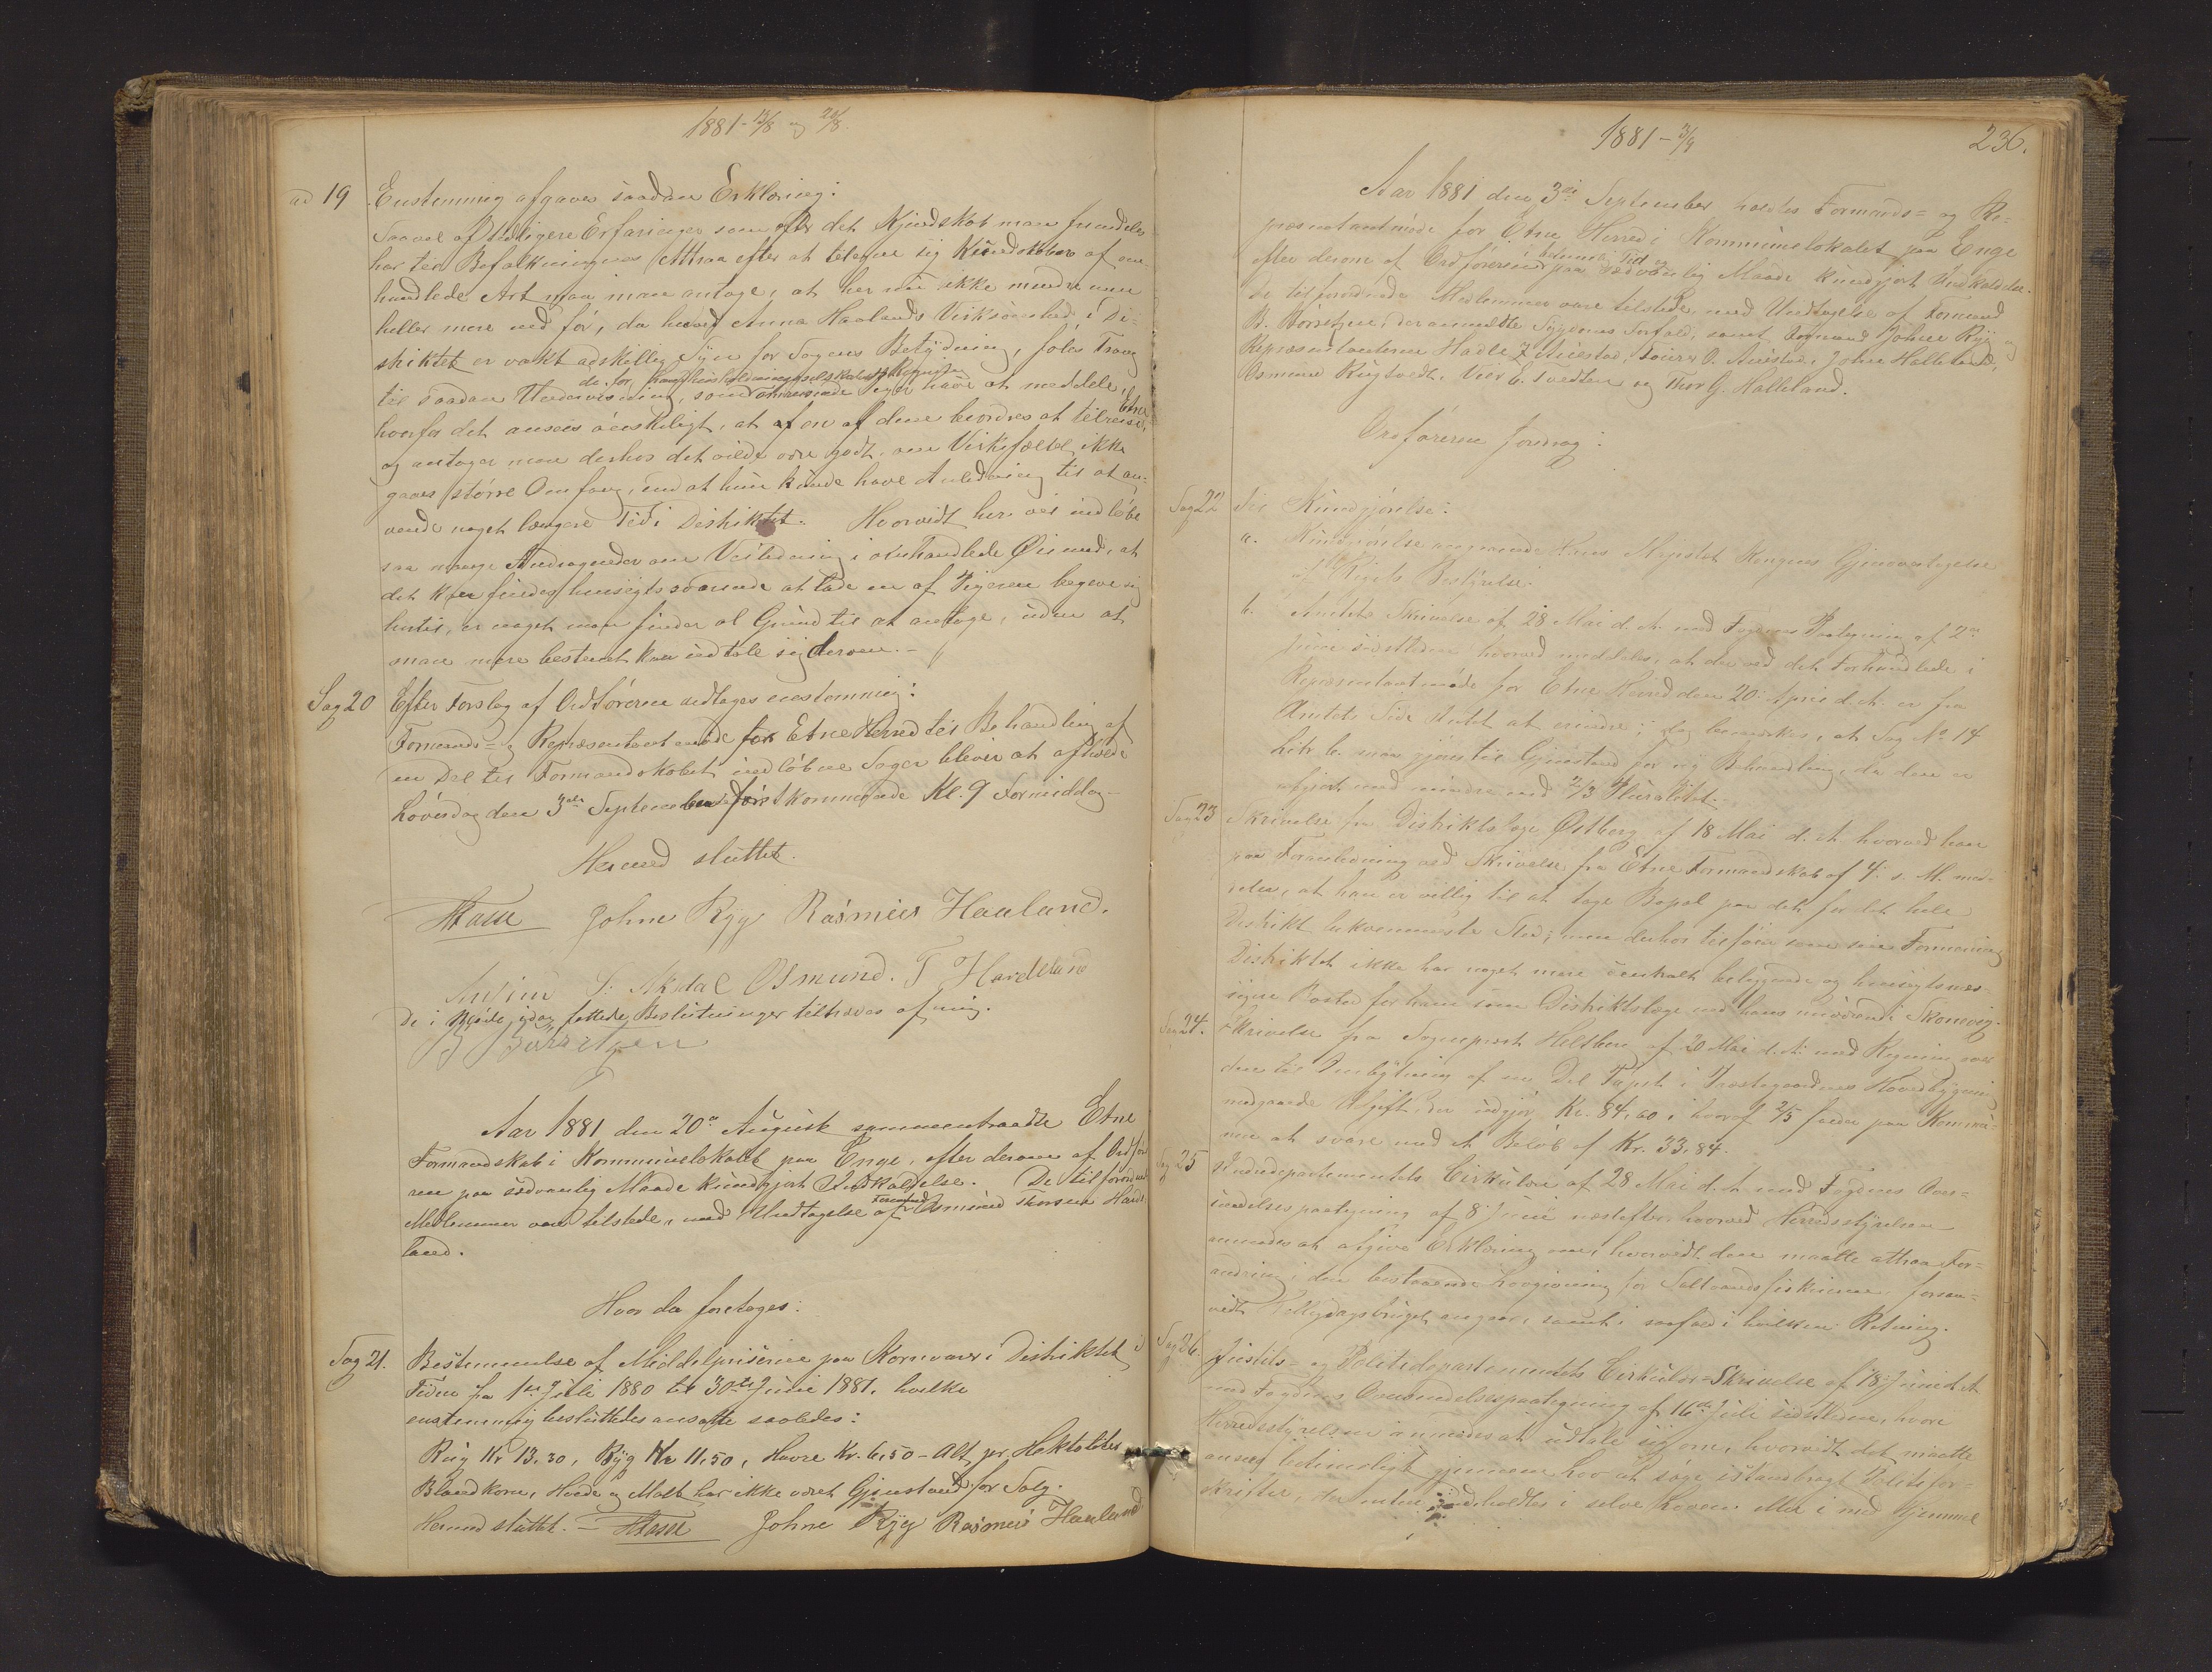 1881 - 13/8 og 20/8.
ad 19 Enstemmig afgaves saadan Erklæring:
Saavel af tidligere Erfaringer som efter det Kjendskab man fremdeles
har til Befolkningens Attraa efter at tilegne sig Kundskaber af om-
handlede Art maa man antage, at her nu ikke mindre men
heller mere end før, da herved Anna Haalands Virksomhed i Di-
striktet er vakt adskillig Syn for Sagens Betydning, føles Trang
til saadan Undervisning, som de for omreisende Piger have at meddele,
hvorfor det ansees ønskeligt, at en af dem beordres at tilreise Etne
og antager man derhos det vilde være godt, om Virkefeltet ikke
gaves større Omfang, end at hun kunde have Anledning til at an-
vende noget længere Tid i Distriktet. Hvorvidt her vil indløbe
saa mange Andragender om Veiledning i omhandlede Øiemed, at
det kan findes hensigtssvarende at lade en af Pigerne begive sig
hertil, er noget man finder al Grund til at antage, uden at
man mere bestemt kan udtale sig derom.-
Sag 20 Efter Forslag af Ordføreren vedtages enstemmig:
Formands- og Repræsentantmøde for Etne Herred til Behandling af
en Del til Formandskabet indløbne Sager bliver at afholde
Løverdag den 3die September førstkommende Kl. 9 Formiddag-
Hermed sluttet.
Johne Ryg Rasmus Haaland.
S. Akdal Osmund. T Hardeland
De i Møde idag fattede Beslutninger tiltrædes af mig.
B Børretzen
Aar 1881 den 20de August sammentraadte Etne
Formandskab i Kommunelokalet paa Enge, efter derom af Ordfø-
reren paa sædvanlig Maade kundgjort Indkaldelse. De tilforordnede
Medlemmer vare tilstede, med Undtagelse af Formand Osmund Thorsen Harde-
land.
Hvor da foretages:
Sag 21. Bestemmelse af Middelpriserne paa Kornvarer i Distriktet i
Tiden fra 1ste Juli 1880 til 30te Juni 1881, hvilke
enstemmig besluttedes ansatte saaledes:
Rug Kr 13,30, Byg Kr 11,50, Havre Kr. 6,50 - Alt pr. Hektoliter
Blandkorn, Hvede og Malt har ikke været Gjenstand for Salg.
Hermed sluttet. - Johne Ryg Rasmus Haaland
1881 - 3/9 236.
Aar 1881 den 3die September holdtes Formands- og Re-
præsentantmøde for Etne Herred i Kommunelokalet paa Enge
efter derom af Ordføreren i betimelig Tid og paa sædvanlig Maade kundgjort Indkaldelse.
De tilforordnede Medlemmer vare tilstede, med Undtagelse af Formand
B. Børretzen, der anmeldte Sygdoms Forfald, samt Formand Johne Ryg og
Repræsentanterne Halle Austad, O. Austad, John Halleland,
Osmund Rygtvedt, Vier E. Tvedten og Thor G. Halleland.
Ordføreren foredrog:
Sag 22 Til Kundgjørelse:
a. Kundgjørelse angaaende Hans Majestæt Kongens Gjenovertagelse
af Rigets Bestyrelse.
b. Amtets Skrivelse af 28 Mai d. A. med Fogdens Paategning af 2den
Juni sidstleden hvorved meddeles, at der ved det Forhandlede i
Repræsentantmøde for Etne Herred den 20. April d. A. er fra
Amtets Side Intet at erindre; dog bemærkes, at Sag No 14
Litr. b. maa gjøres til Gjenstand for ny Behandling, da den er
afgjort med mindre end 2/3 Pluralitet.
Sag 23 Skrivelse fra Distriktslæge Østberg af 18 Mai d. A. hvorved han
paa Foranledning ved Skrivelse fra Etne Formandskab af 4. s. M. med-
deler, at han er villig til at tage Bopæl paa det for det hele
Distrikt bekvemmeste Sted; men derhos tilføier som sin Formening
Distriktet ikke har noget mere centralt beliggende og hensigtsmæs-
sigere Bosted for ham som Distriktslæge end hans nuværende i Skonevig.
Sag 24. Skrivelse fra Sogneprest Heltberg af 20 Mai d. A. med Regning over
den til Ombytning af en Del Tapet i Præstegaardens Hovedbygning
medgaaede Udgift, der udgjør Kr. 84,60, hvoraf 2/5 falder paa Kommu-
nen at svare med et Beløb af Kr. 33,84.
Sag 25 Indredepartementets Cirkulære af 28 Mai d. A. med Fogdens Over-
sendelsespaategning af 8 Juni næstefter, hvorved Herredsstyrelsen
anmodes at afgive Erklæring om, hvorvidt den maatte attraa For-
andring i den bestaaende Lovgivning for Saltvandsfiskerierne, forsaa-
vidt Helligdagsbruget angaar, samt i saafald i hvilken Retning.
Sag 26. Justits- og Politidepartementets Cirkulær-Skrivelse af 18 Juni d. A.
med Fogdens Oversendelsespaategning af 16de Juli sidstleden, hvori
Herredsstyrelsen anmodes at udtale sig om, hvorvidt det maatte
ansees betimeligt gjennem Lov at søge istandbragt Politifor-
skrifter, der enten indeholdtes i selve Loven eller i med Hjemmel